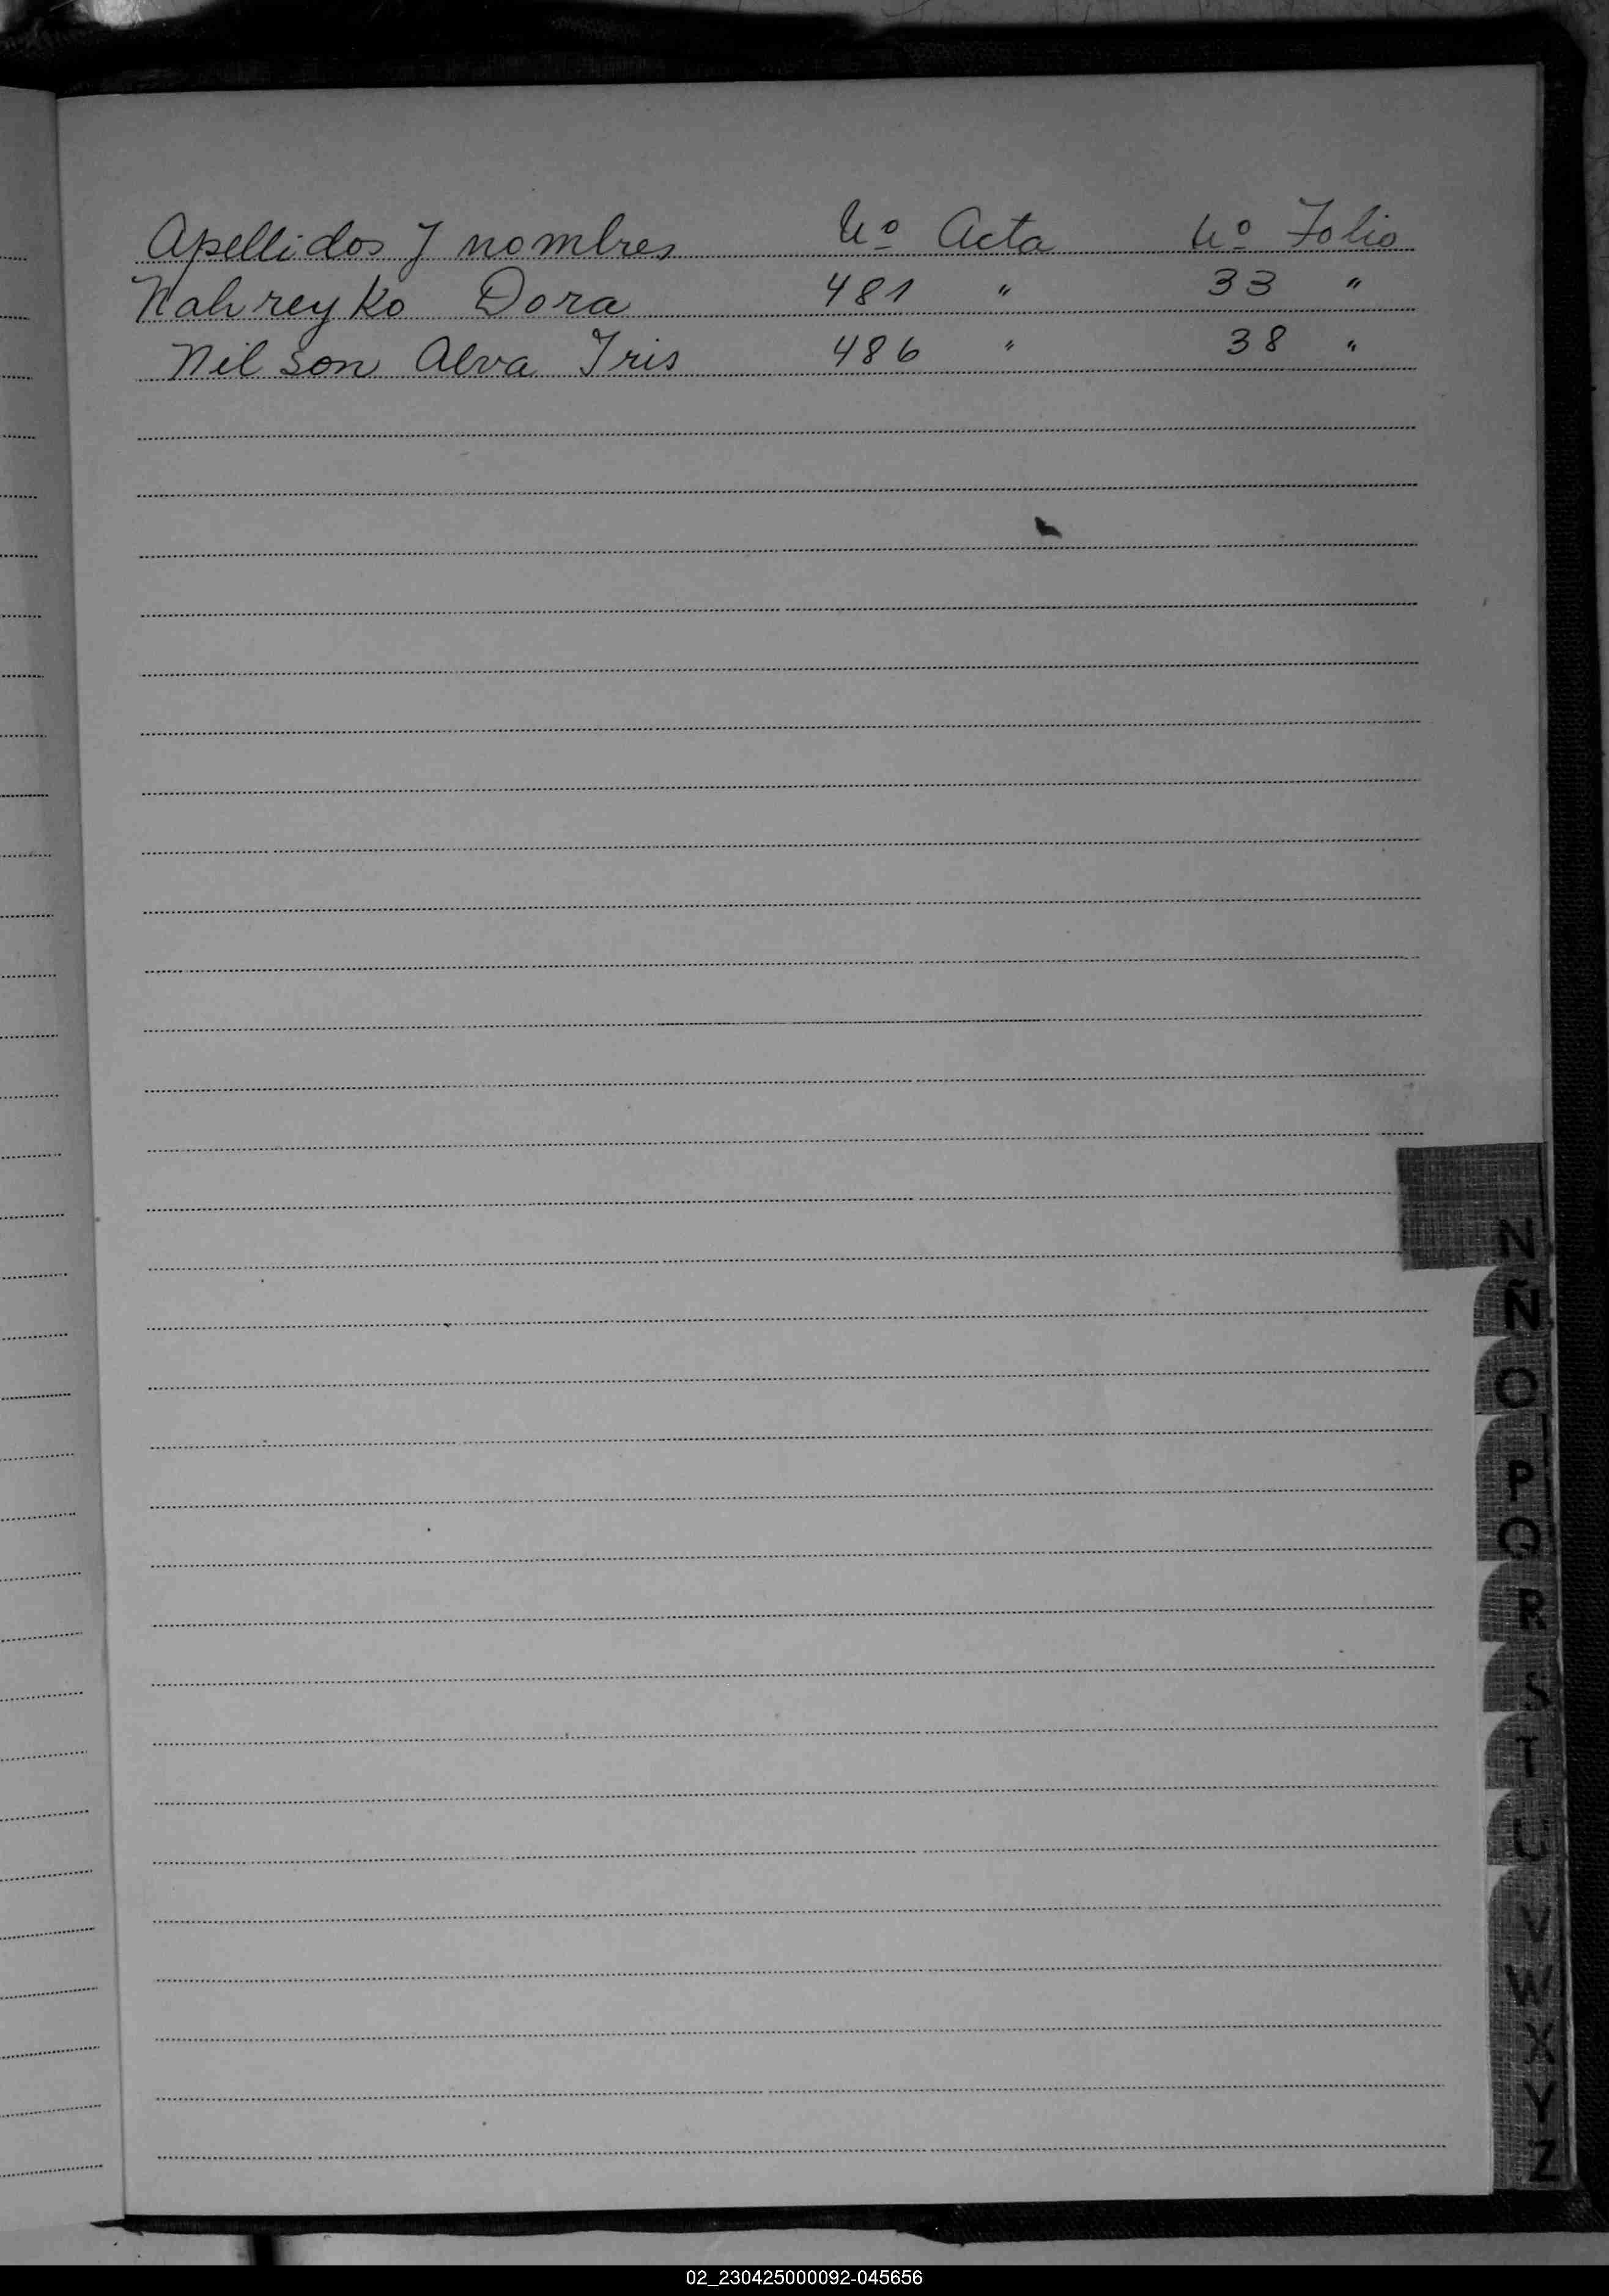 Apellidos y nombres Nº Acta Nº Folio
Nahreyko Dora 481 " 33 "
Nilson Alva Iris 486 " 38 "
N
Ñ
O
P
Q
R
S
T
U
V
W
X
Y
Z
02_230425000092-045656